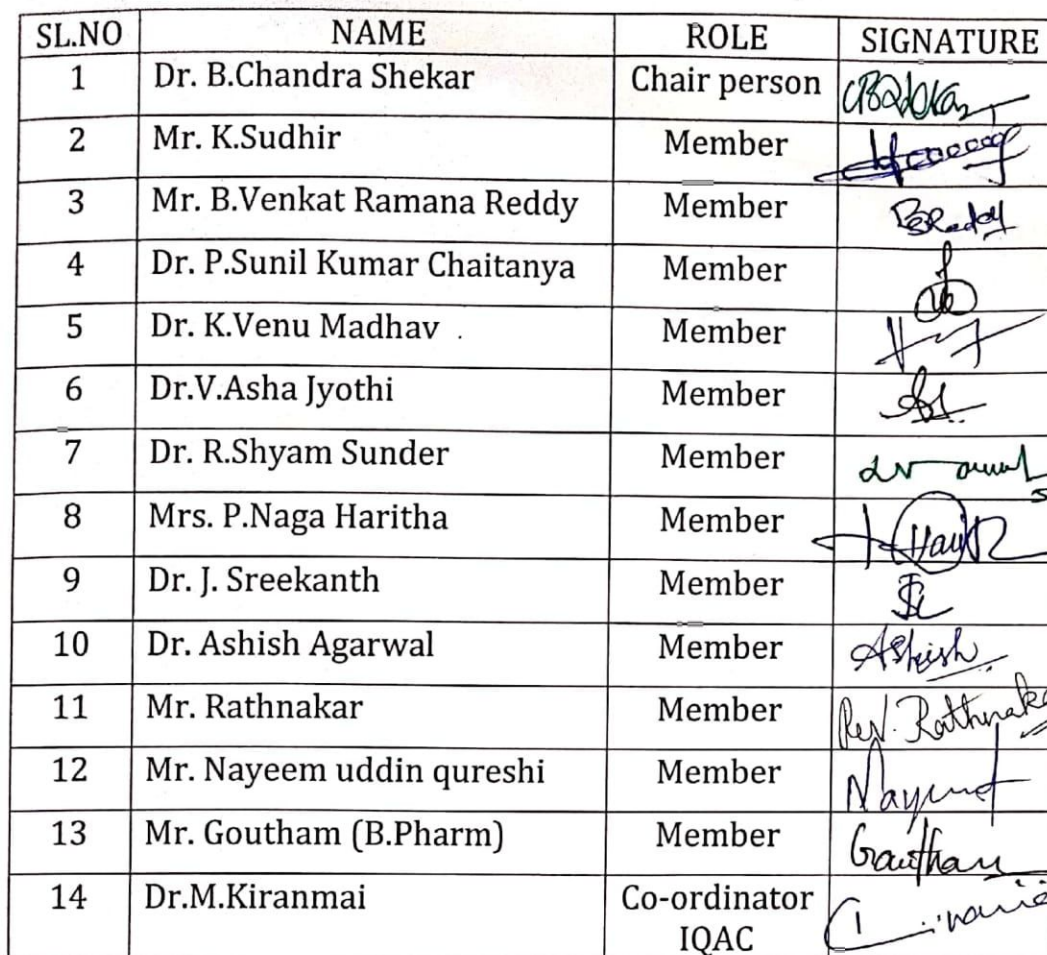 SL.NO NAME ROLE SIGNATURE
1 Dr. B.Chandra Shekar Chair person
2 Mr. K.Sudhir Member
3 Mr. B.Venkat Ramana Reddy Member BSReddy
4 Dr. P.Sunil Kumar Chaitanya Member
5 Dr. K.Venu Madhav Member
6 Dr.V.Asha Jyothi Member
7 Dr. R.Shyam Sunder Member
8 Mrs. P.Naga Haritha Member
9 Dr. J. Sreekanth Member
10 Dr. Ashish Agarwal Member Ashish
11 Mr. Rathnakar Member
12 Mr. Nayeem uddin qureshi Member
13 Mr. Goutham (B.Pharm) Member
14 Dr.M.Kiranmai Co-ordinator
IQAC